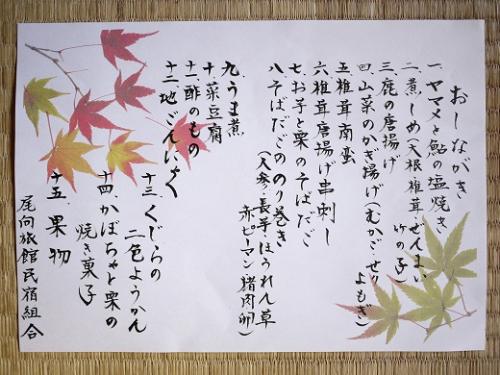 おしながき
一、ヤマメと鮎の塩焼き
二、煮しめ(大根椎茸ぜんまい
竹の子)
三、鹿の唐揚げ
四、山菜のかき揚げ(むかご、せり
よもぎ)
五、椎茸南蛮
六、椎茸唐揚げ串刺し
七、お芋と栗のそばだご
八、そばだごののり巻き
(人参、長芋ほうれん草
赤ピーマン猪肉卵)
九、うま煮
十、菜豆腐
十一、酢のもの
十二、地ごんにゃく
十三、くじらの
二色ようかん
十四、かぼちゃと栗の
焼き菓子
十五、果物
尾向旅館民宿組合